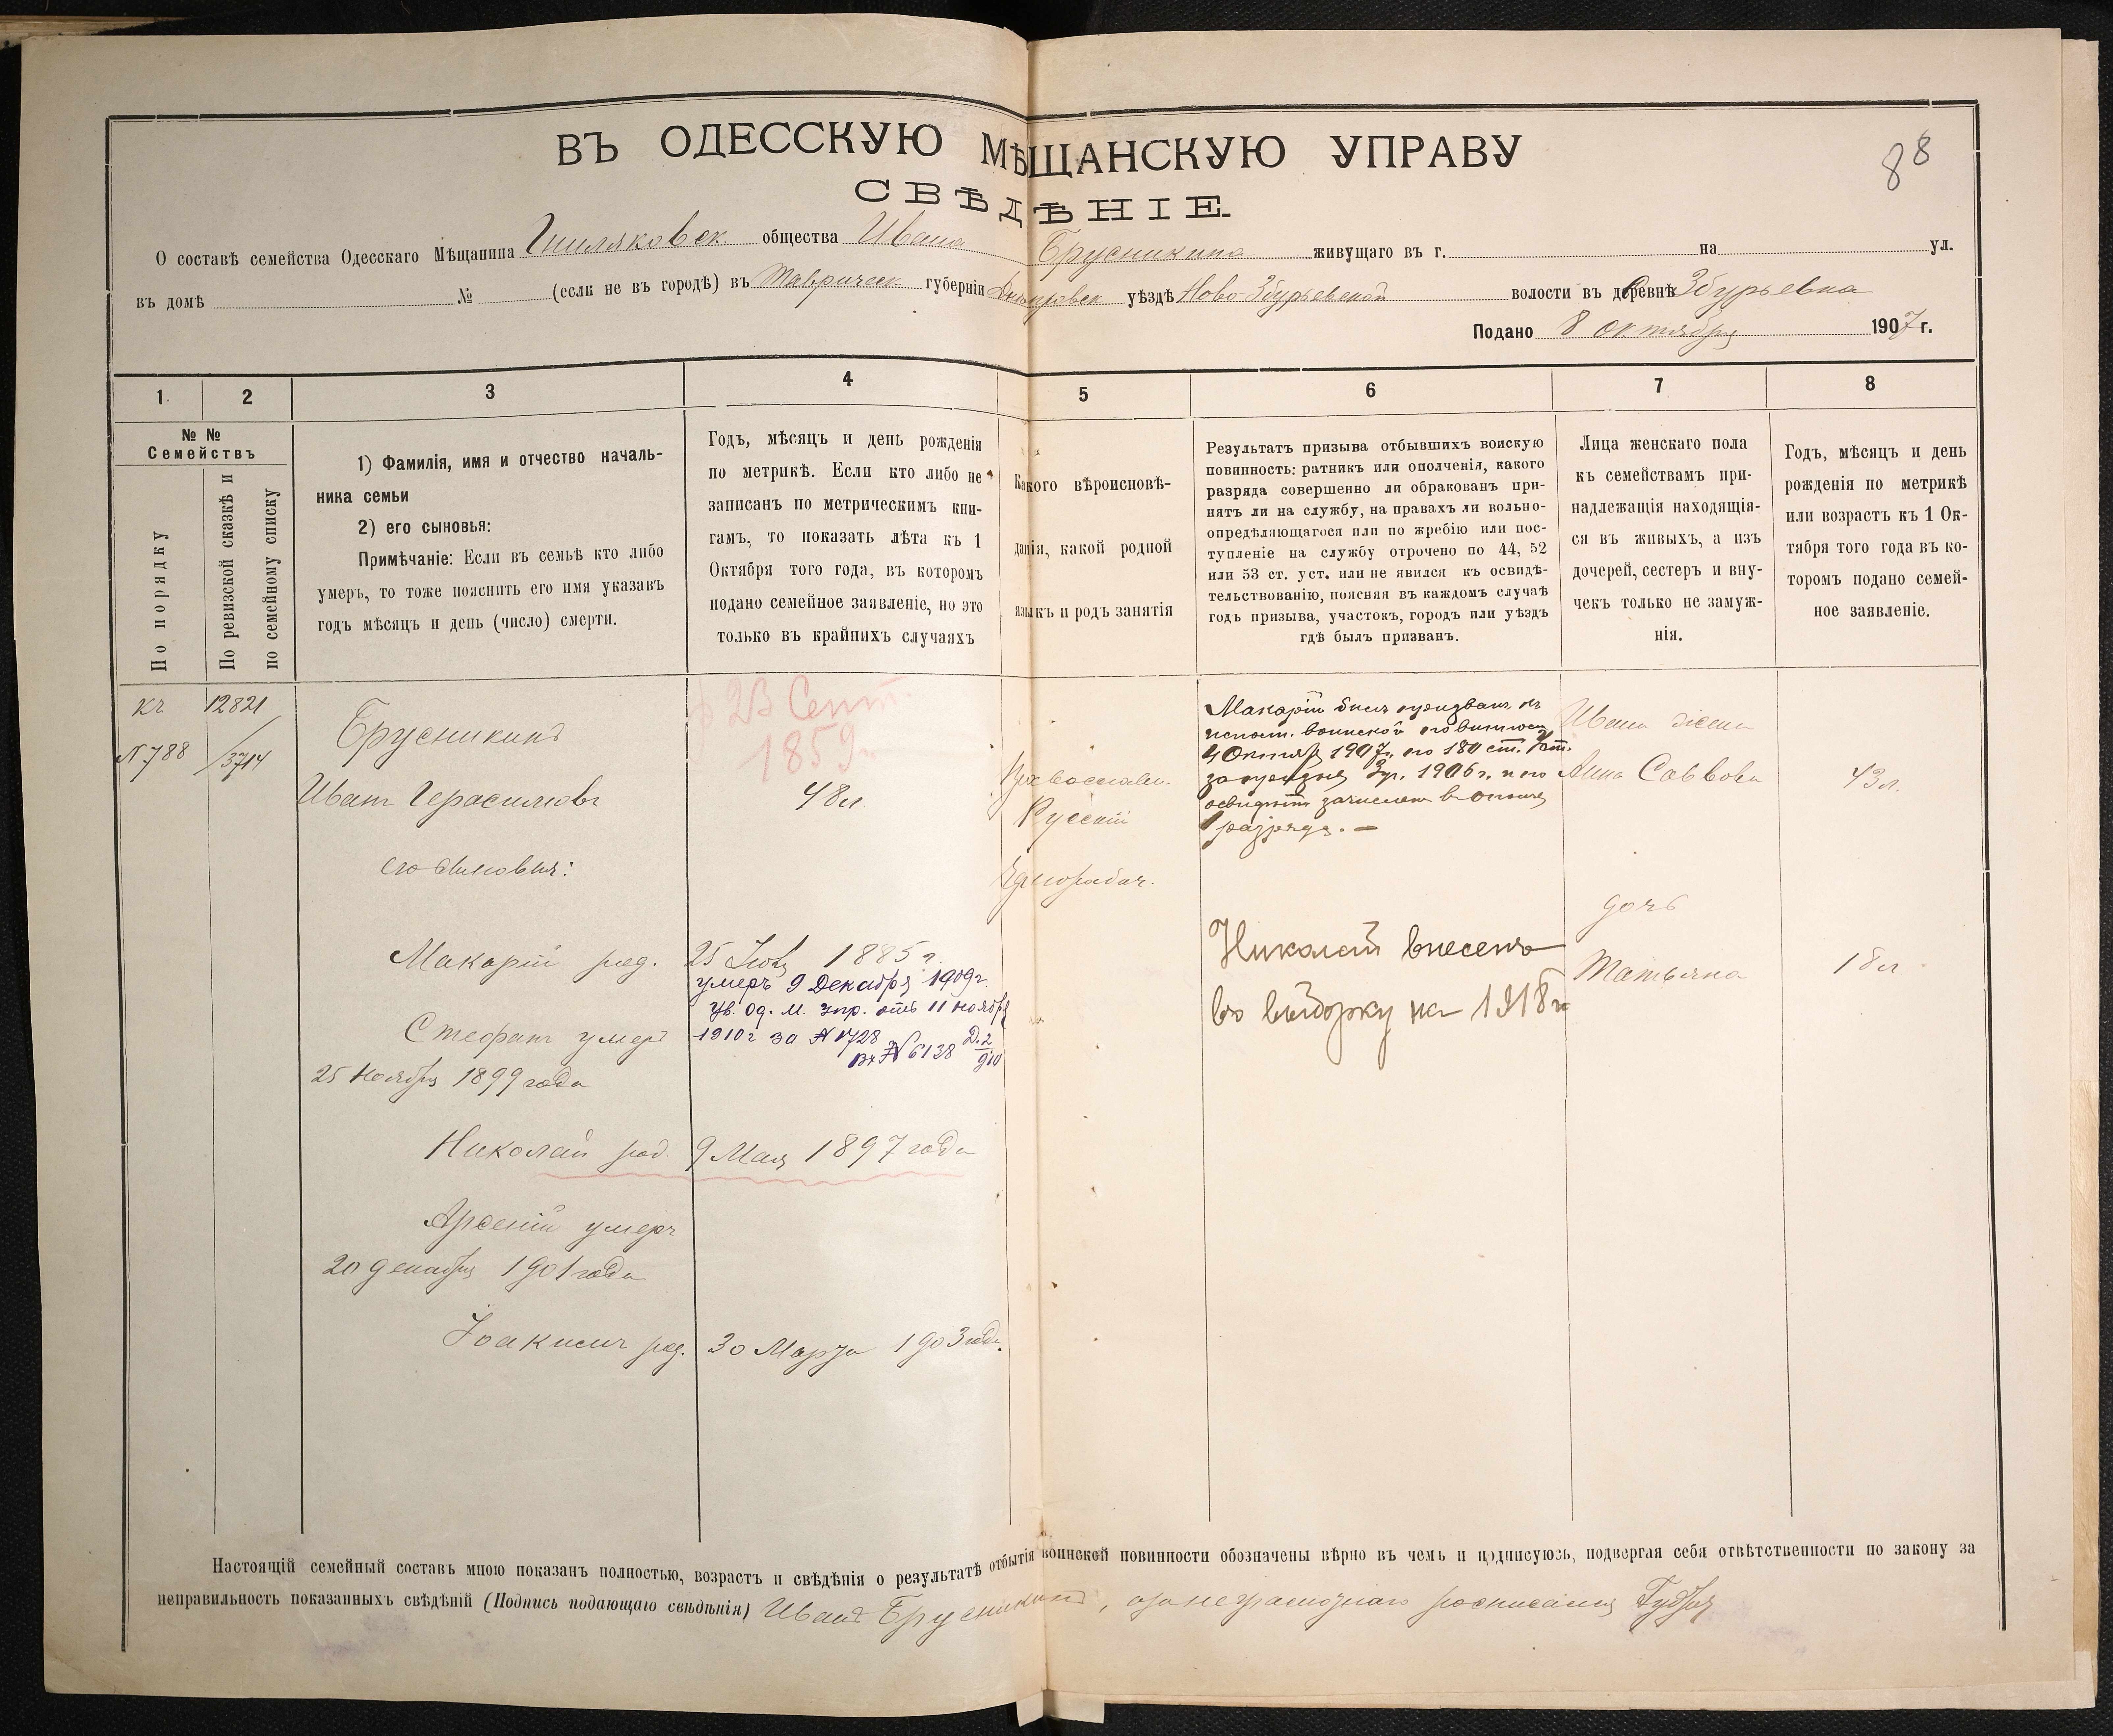 ВЪ ОДЕССКУЮ МѢЩАНСКУЮ УПРАВУ
88
СВѢДѢНІЕ.
О составѣ семейства Одесскаго Мѣщанина общества Ивана Брусникина живущаго въ г. на ул.
въ домѣ № (если не въ городѣ) въ Таврическ. губерніи Днѣпровск уѣздѣ Ново Збурьевской волости въ деревнѣ Збурьевка
Подано 8 октября 1907 г.
1. 2 3 4 5 6 7 8
№ №
Семействъ
По порядку
По ревизской сказкѣ и
по семейному списку
1) Фамилія, имя и отчество началь-
ника семьи
2) его сыновья:
Примѣчаніе: Если въ семьѣ кто либо
умеръ, то тоже пояснить его имя указавъ
годъ мѣсяцъ и день (число) смерти.
Годъ, мѣсяцъ и день рожденія
по метрикѣ. Если кто либо не
записанъ по метрическимъ кни-
гамъ, то показать лѣта къ 1
Октября того года, въ которомъ
подано семейное заявленіе, но это
только въ крайнихъ случаяхъ
Какого вѣроисповѣ-
данія, какой родной
языкъ и родъ занятія
Результатъ призыва отбывшихъ воискую
повинность: ратникъ или ополченія, какого
разряда совершенно ли обракованъ при-
нятъ ли на службу, на правахъ ли вольно-
опредѣляющагося или по жребію или пос-
тупленіе на службу отрочено по 44, 52
или 53 ст. уст. или не явился къ освидѣ-
тельствованію, поясняя въ каждомъ случаѣ
годъ призыва, участокъ, городъ или уѣздъ
гдѣ былъ призванъ.
Лица женскаго пола
къ семействамъ при-
надлежащія находящія-
ся въ живыхъ, а изъ
дочерей, сестеръ и вну-
чекъ только не замуж-
нія.
Годъ, мѣсяцъ и день
рожденія по метрикѣ
или возрастъ къ 1 Ок-
тября того года въ ко-
торомъ подано семей-
ное заявленіе.
кг 12821
N 788 /3714
Брусникинъ
Иванъ Герасимовъ
р 23 Сент.
1859 г.
48 л.
Православн.
Русскій
Чернорабоч.
Макарій былъ
воинской повинност
4 Октяб 1907 г. по 180 ст. Уст.
1906 г. и по
зачисленъ в
1 разряда. —
Ивана жена
Анна Саввова
43 л.
его сыновья:
дочь
Татьяна
18 л.
Макарій род. 25 1885 г.
умеръ 9 Декабря 1909 г.
Ув. Од. М. Упр. отъ 11 ноября
1910 г за N 1728
Вх N 6138 Д. 2/910
Николай внесенъ
въ выборку на 1918 г
Стефанъ умеръ
25 Ноября 1899 года
Николай род. 9 Мая 1897 года
Арсеній умеръ
20 декабря 1901 года
Іоакимъ род. 30 Марта 1903 года.
Настоящій семейный составъ мною показанъ полностью, возрастъ и свѣдѣнія о результатѣ отбытія воинской повинности обозначены вѣрно въ чемъ и подписуюсь, подвергая себя отвѣтственности по закону за
неправильность показанныхъ свѣдѣній (Подпись подающаго свѣдѣнія) Иванъ Брусникинъ, а за неграмотнаго росписался